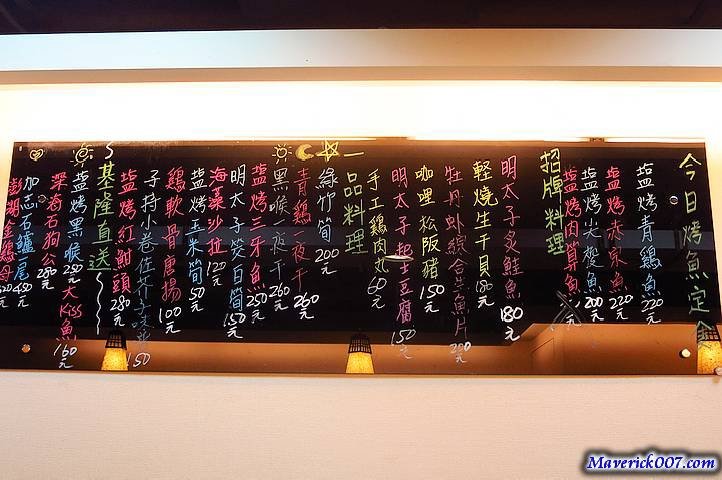 今日烤魚定食
塩烤青鷄魚 220元
塩烤赤宗魚 220元
塩烤尖梭魚 200元
塩烤肉算魚
招牌料理
明太子炙鮭魚 180元
輕燒生干貝 180元
牡丹蝦綜合生魚片 200元
咖哩松阪豬 150元
明太子起士豆腐 150元
手工鷄肉丸 60元
一品料理
綠竹筍 200元
青鷄一夜干 260元
黑喉一夜干 260元
塩烤三牙魚 250元
明太子筊白筍 150元
海藻沙拉 120元
塩烤玉米筍 50元
鷄軟骨唐揚 100元
子持小卷佐芥子 150
塩烤紅魽頭 280元
基隆直送
塩烤黑喉 250元
大Kiss魚 160元
深海石狗公 280元
加志石鱸一尾 450元
澎湖金鷄母
Maverick007.com